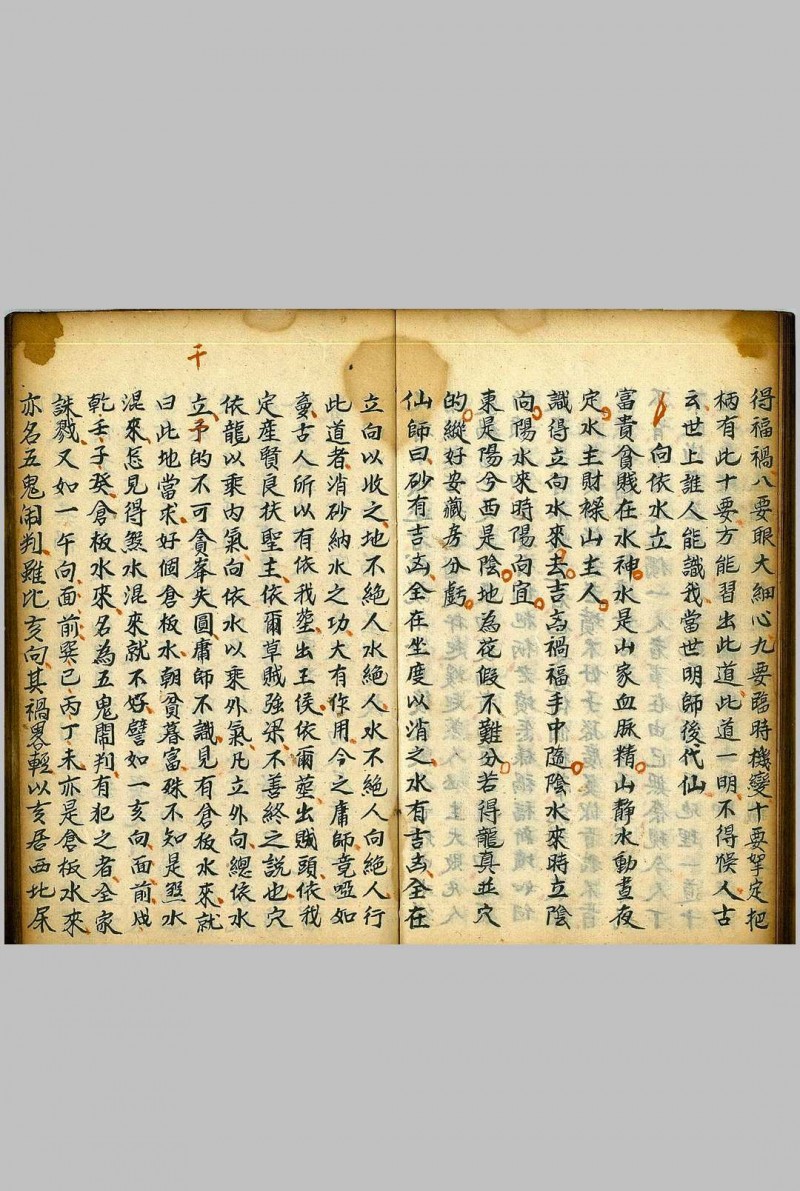 得福禍八要眼大細心九要臨時機變十要拏定把
柄有此十要方能習出此道此道一明不得悞人古
云世上誰人能識我當世明師後代仙
向依水立
富貴貧賤在水神水是山家血脈精山靜水動晝夜
定水主財祿山主人
識得立向水來去吉凶禍福手中隨陰水來時立陰
向陽水來時陽向宜
東是陽兮西是陰地為花假不難分若得龍真並穴
的縱好安藏房分虧
仙師曰砂有吉凶全在坐度以消之水有吉凶全在
立向以收之地不絕人水絕人水不絕人向絕人行
此道者消砂納水之功大有作用今之庸師竟啞如
臺古人所以有依我塟出王侯依爾塟出賊頭依我
定產賢良扶聖主依爾草賊強梁不善終之說也穴
依龍以乘內氣向依水以乘外氣凡立外向總依水
立予的不可貪峯失圓庸師不識見有倉板水來就
曰此地當求好個倉板水朝貧暮富殊不知是煞水
混來怎見得煞水混來就不好譬如一亥向面前戌
乾壬子癸倉板水來名為五鬼鬧判有犯之者全家
誅戮又如一午向面前巽巳丙丁未亦是倉板水來
亦名五鬼鬧判雖比亥向其禍畧輕以亥居西北屎
干